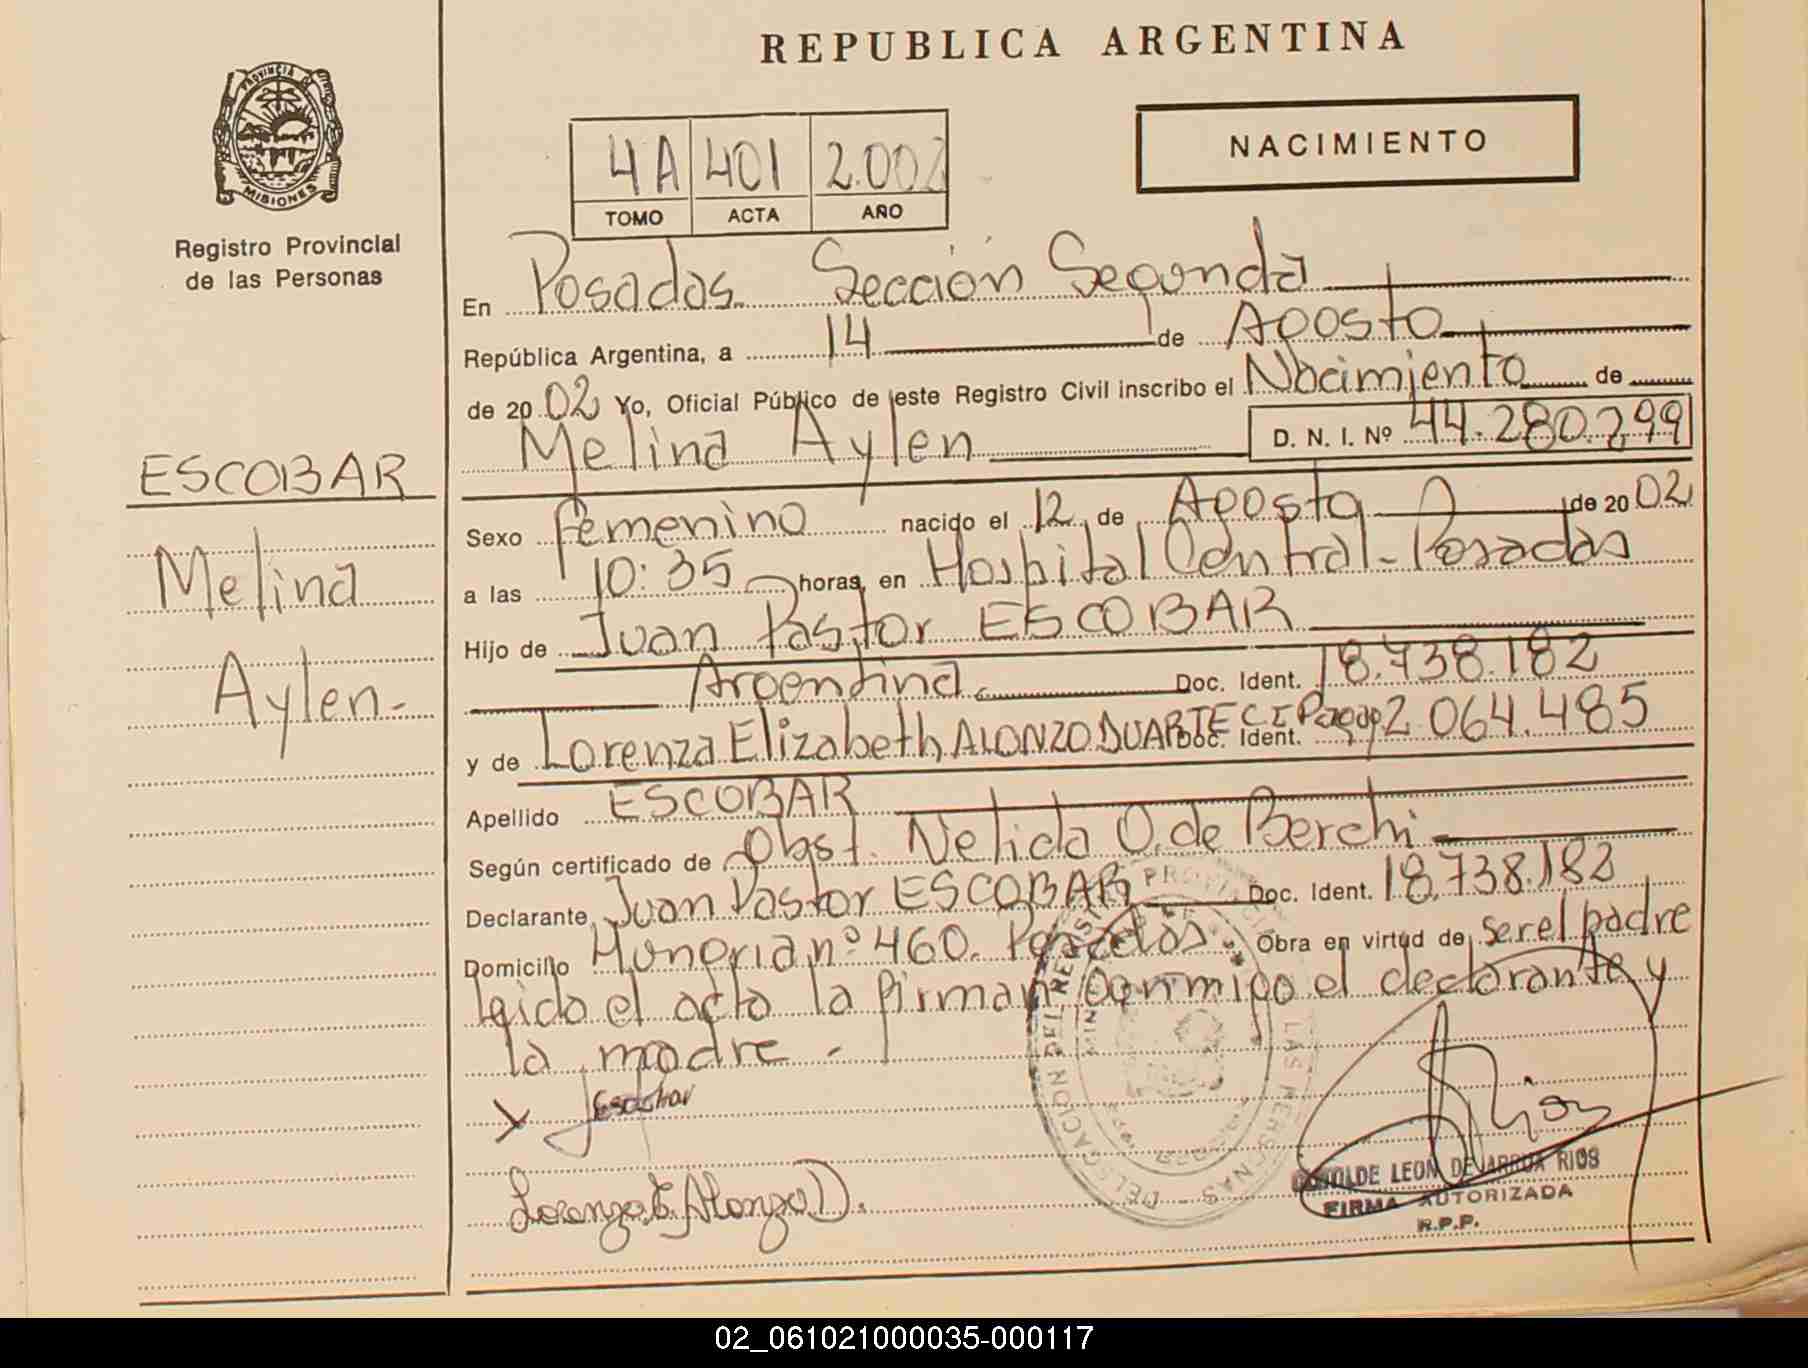 REPUBLICA ARGENTINA
PROVINCIA DE
MISIONES
Registro Provincial
de las Personas
4A 401 2.002
TOMO ACTA AÑO
NACIMIENTO
En Posadas Sección Segunda
República Argentina, a 14 de Agosto
de 2002 Yo, Oficial Público de este Registro Civil inscribo el Nacimiento de
Melina Aylen D. N. I. Nº 44.280.299
ESCOBAR
Melina
Aylen-
Sexo femenino nacido el 12 de Agosto de 2002
a las 10:35 horas, en Hospital Central - Posadas
Hijo de Juan Pastor ESCOBAR
Argentina Doc. Ident. 18.738.182
y de Lorenza Elizabeth ALONZO DUARTE C I Doc. Ident. 2 064.485
Apellido ESCOBAR
Según certificado de Obst. Nelida O. de Berchi
Declarante Juan Pastor ESCOBAR Doc. Ident. 18.738.182
Domicilio Hungria nº 460. Posadas. Obra en virtud de ser el padre
leido el acta la firman conmigo el declarante y
la madre -
X Escobar
Lorenza E. Alonzo D.
DELEGACION DEL REGISTRO PROVINCIAL DE LAS PERSONAS
LEON DE ARRUA RIOS
FIRMA AUTORIZADA
R.P.P.
02_061021000035-000117